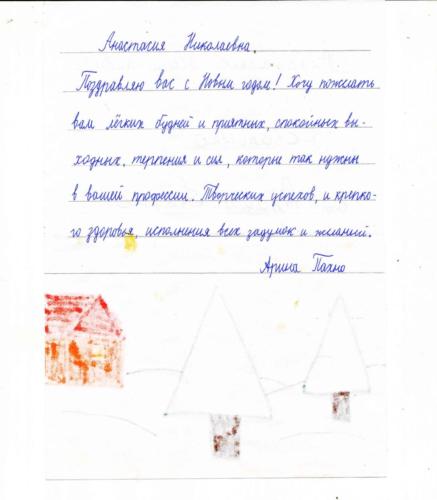 Анастасия Николаевна.
Поздравляю вас с Новым годом! Хочу пожелать
вам лёгких будней и приятных, спокойных вы-
ходных, терпения и сил, которые так нужны
в вашей профессии. Творческих успехов, и крепко-
го здоровья, исполнения всех задумок и желаний.
Арина Пахно